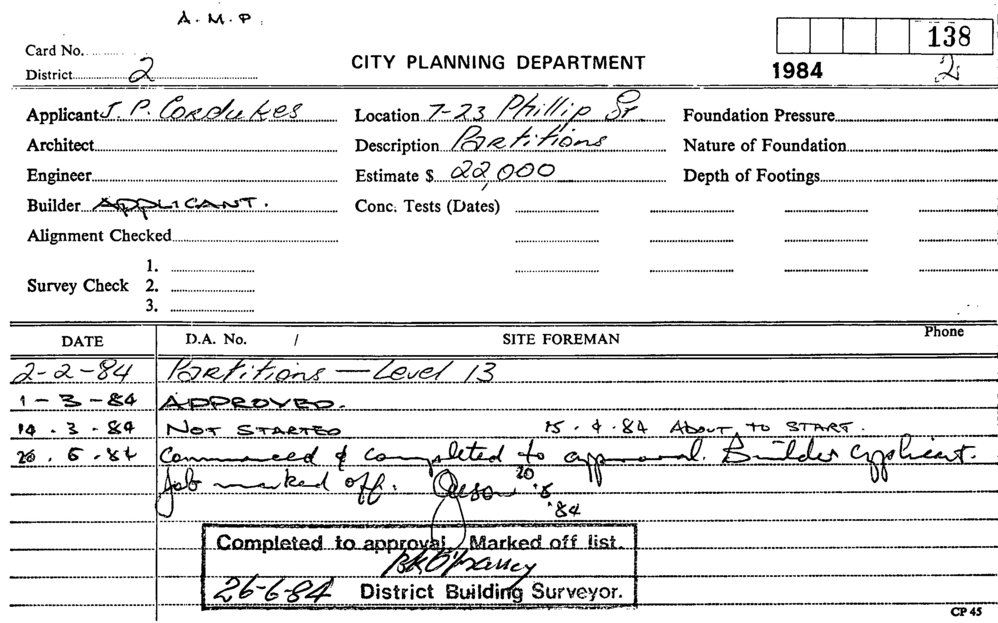 A.M.P.
Card No.
138
District 2
CITY PLANNING DEPARTMENT
1984 2
Applicant J. P. Cordukes
Location 7-23 Phillip St.
Foundation Pressure
Architect
Description Partitions
Nature of Foundation
Engineer
Estimate $ 22,000
Depth of Footings
Builder APPLICANT.
Conc. Tests (Dates)
Alignment Checked
1.
Survey Check 2.
3.
DATE D.A. No. / SITE FOREMAN Phone
2-2-84 Partitions — Level 13
1-3-84 APPROVED.
14.3.84 NOT STARTED 15.4.84 ABOUT TO START.
20.5.84 Commenced & completed to approval. Builder applicant.
Job marked off. 20.5.84
Completed to approval Marked off list.
26-6-84 District Building Surveyor.
CP 45